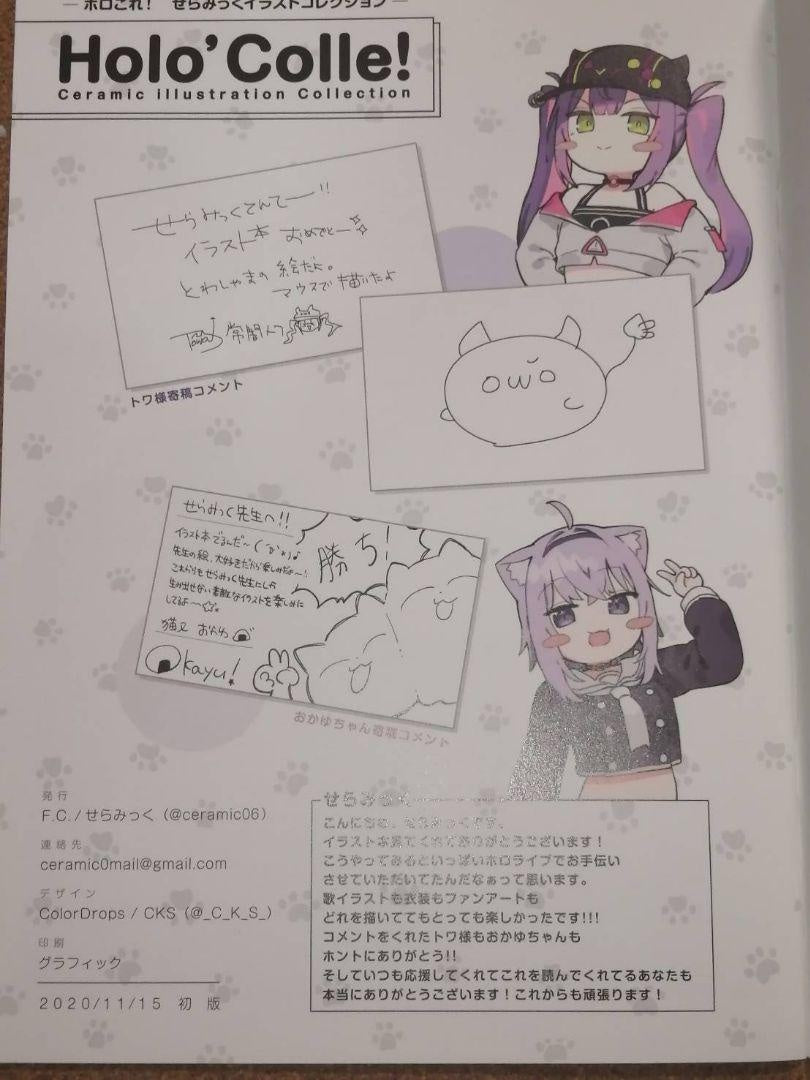 ホロこれ! せらみっくイラストコレクション
Holo'Colle!
Ceramic illustration Collection
せらみっくてんてー!!
イラスト本 おめでとー
とわしゃまの 絵だよ。
マウスで 描いたよ
Towa 常闇トワ
トワ様寄稿コメント
owo
せらみっく先生へ!!
イラスト本でるんだ〜
先生の絵、大好きだから楽しみだよ〜!
これからもせらみっく先生にしか
生み出せない素敵なイラストを楽しみに
してるよ〜☆
猫又 おかゆ
Okayu!
勝ち!
おかゆちゃん寄稿コメント
発行
F.C./せらみっく(@ceramic06)
連絡先
ceramic0mail@gmail.com
デザイン
ColorDrops / CKS(@_C_K_S_)
印刷
グラフィック
2020/11/15 初 版
せらみっく
こんにちは、せらみっくです。
イラスト本見てくれてありがとうございます!
こうやってみるといっぱいホロライブでお手伝い
させていただいてたんだなぁって思います。
歌イラストも衣装もファンアートも
どれを描いててもとっても楽しかったです!!!
コメントをくれたトワ様もおかゆちゃんも
ホントにありがとう!!
そしていつも応援してくれてこれを読んでくれてるあなたも
本当にありがとうございます!これからも頑張ります!